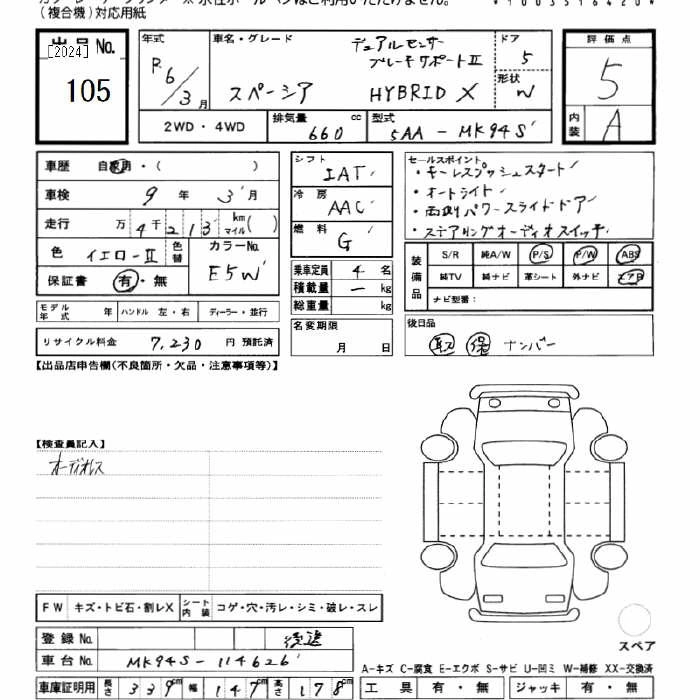 (複合機)対応用紙
出品No.
[2024]
105
年式
R6/3月
車名・グレード
デュアルセンサー
ブレーキサポートⅡ
スペーシア HYBRID X
ドア
5
形状
W
評価点
5
内装
A
2WD・4WD
排気量 660 cc
型式 5AA-MK94S
車歴 自家用・( )
車検 9年 3月
走行 万4千213 km マイル( )
色 イエロー-Ⅱ 色替
カラーNo. E5W
保証書 有・無
モデル年式 年 ハンドル 左・右 ディーラー・並行
リサイクル料金 7,230 円 預託済
シフト IAT
冷房 AAC
燃料 G
乗車定員 4 名
積載量 ー kg
総重量 kg
名変期限
月 日
セールスポイント
・キーレスプッシュスタート
・オートライト
・両側パワースライドドア
・ステアリングオーディオスイッチ
装備品
S/R 純A/W P/S P/W ABS
純TV 純ナビ 革シート 外ナビ エアB
ナビ型番:
後日品
取 保 ナンバー
【出品店申告欄(不良箇所・欠品・注意事項等)】
【検査員記入】
オーディオレス
FW キズ・トビ石・割レX シート内装 コゲ・穴・汚レ・シミ・破レ・スレ
登録No. 後送
車台No. MK94S-114626
車庫証明用 長さ 339cm 幅 147cm 高さ 178cm
スペア
A-キズ C-腐食 E-エクボ S-サビ U-凹ミ W-補修 XX-交換済
工具 有・無 ジャッキ 有・無